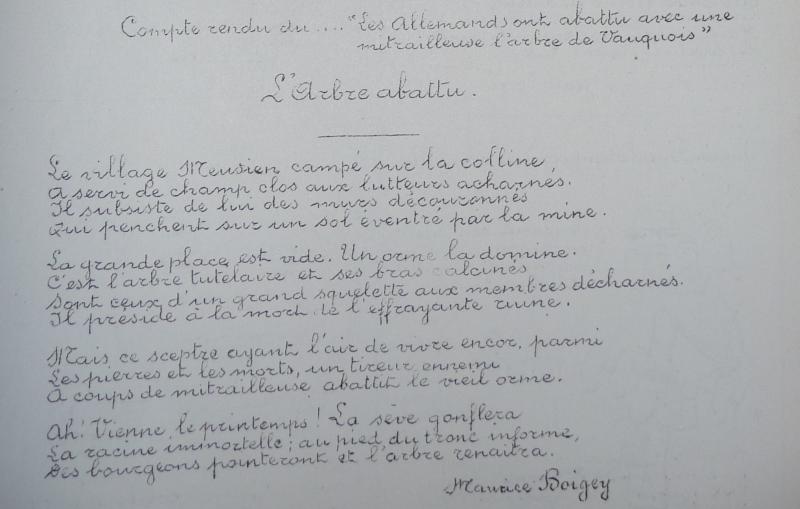 Compte rendu du .... "Les Allemands ont abattu avec une
mitrailleuse l'arbre de Vauquois"
L'Arbre abattu.
Le village Meusien campé sur la colline,
A servi de champ clos aux lutteurs acharnés.
Il subsiste de lui des murs découronnés
Qui penchent sur un sol éventré par la mine.
La grande place est vide. Un orme la domine.
C'est l'arbre tutelaire et ses bras calcinés
Sont ceux d'un grand squelette aux membres décharnés.
Il préside à la mort de l'effrayante ruine.
Mais ce sceptre ayant l'air de vivre encor, parmi
Les pierres et les morts, un tireur ennemi
A coups de mitrailleuse abattit le vieil orme.
Ah! Vienne le printemps! La sève gonflera
La racine immortelle; au pied du tronc informe,
Des bourgeons pointeront et l'arbre renaitra.
Maurice Boigey